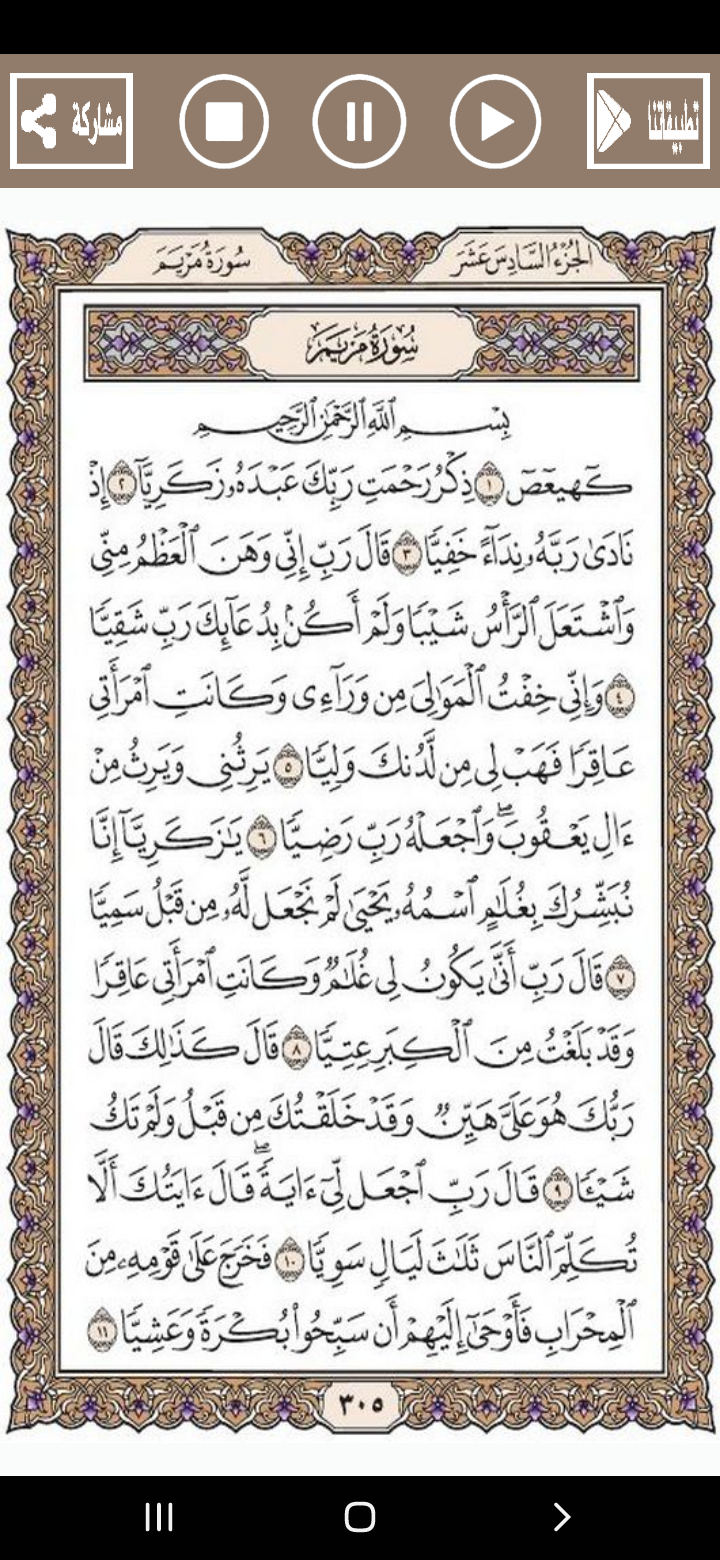 مشاركة
تطبيقاتنا
الجُزْءُ السَّادِسَ عَشَرَ
سُورَةُ مَرْيَمَ
سُورَةُ مَرْيَمَ
بِسْمِ ٱللَّهِ ٱلرَّحْمَٰنِ ٱلرَّحِيمِ
كٓهيعٓصٓ ١ ذِكْرُ رَحْمَتِ رَبِّكَ عَبْدَهُۥ زَكَرِيَّآ ٢ إِذْ
نَادَىٰ رَبَّهُۥ نِدَآءً خَفِيًّا ٣ قَالَ رَبِّ إِنِّى وَهَنَ ٱلْعَظْمُ مِنِّى
وَٱشْتَعَلَ ٱلرَّأْسُ شَيْبًا وَلَمْ أَكُنۢ بِدُعَآئِكَ رَبِّ شَقِيًّا
٤ وَإِنِّى خِفْتُ ٱلْمَوَٰلِىَ مِن وَرَآءِى وَكَانَتِ ٱمْرَأَتِى
عَاقِرًا فَهَبْ لِى مِن لَّدُنكَ وَلِيًّا ٥ يَرِثُنِى وَيَرِثُ مِنْ
ءَالِ يَعْقُوبَ ۖ وَٱجْعَلْهُ رَبِّ رَضِيًّا ٦ يَٰزَكَرِيَّآ إِنَّا
نُبَشِّرُكَ بِغُلَٰمٍ ٱسْمُهُۥ يَحْيَىٰ لَمْ نَجْعَل لَّهُۥ مِن قَبْلُ سَمِيًّا
٧ قَالَ رَبِّ أَنَّىٰ يَكُونُ لِى غُلَٰمٌ وَكَانَتِ ٱمْرَأَتِى عَاقِرًا
وَقَدْ بَلَغْتُ مِنَ ٱلْكِبَرِ عِتِيًّا ٨ قَالَ كَذَٰلِكَ قَالَ
رَبُّكَ هُوَ عَلَىَّ هَيِّنٌ وَقَدْ خَلَقْتُكَ مِن قَبْلُ وَلَمْ تَكُ
شَيْـًٔا ٩ قَالَ رَبِّ ٱجْعَل لِّىٓ ءَايَةً ۖ قَالَ ءَايَتُكَ أَلَّا
تُكَلِّمَ ٱلنَّاسَ ثَلَٰثَ لَيَالٍ سَوِيًّا ١٠ فَخَرَجَ عَلَىٰ قَوْمِهِۦ مِنَ
ٱلْمِحْرَابِ فَأَوْحَىٰٓ إِلَيْهِمْ أَن سَبِّحُوا۟ بُكْرَةً وَعَشِيًّا ١١
٣٠٥